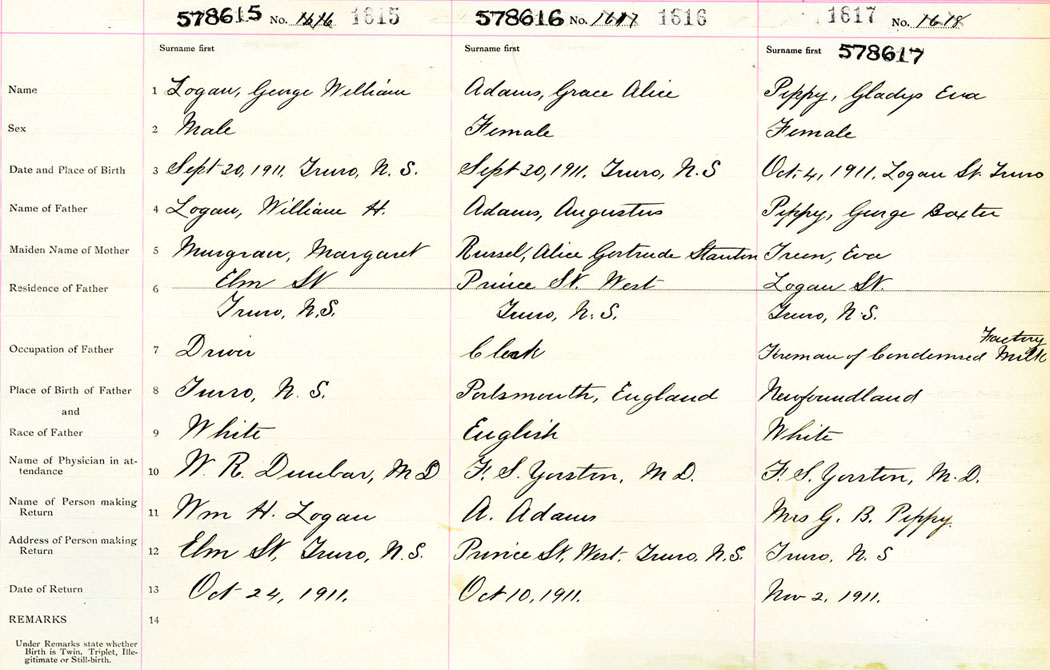 578615 No. 1616 1615 578616 No. 1617 1616 1617 No. 1618
Surname first Surname first Surname first 578617
Name 1 Logan, George William Adams, Grace Alice Pippy, Gladys Eva
Sex 2 Male Female Female
Date and Place of Birth 3 Sept 20, 1911, Truro, N.S. Sept 20, 1911, Truro, N.S Oct 4, 1911, Logan St. Truro
Name of Father 4 Logan, William H. Adams, Augustus Pippy, George Baxter
Maiden Name of Mother 5 Musgrave, Margaret Russel, Alice Gertrude Stanton Treen, Eva
Residence of Father 6 Elm St Prince St. West Logan St.
Truro, N.S. Truro, N.S. Truro, N.S.
Factory
Occupation of Father 7 Driver Clerk Fireman of Condensed Milk
Place of Birth of Father 8 Truro, N.S. Portsmouth, England Newfoundland
and
Race of Father 9 White English White
Name of Physician in at-
tendance 10 W. R. Dunbar, M D F. S. Yorston, M D. F. S. Yorston, M. D.
Name of Person making
Return 11 Wm H. Logan A. Adams Mrs G. B. Pippy.
Address of Person making
Return 12 Elm St, Truro, N.S. Prince St, West, Truro, N.S. Truro, N.S
Date of Return 13 Oct 24, 1911. Oct 10, 1911. Nov 2, 1911.
REMARKS 14
Under Remarks state whether
Birth is Twin, Triplet, Ille-
gitimate or Still-birth.